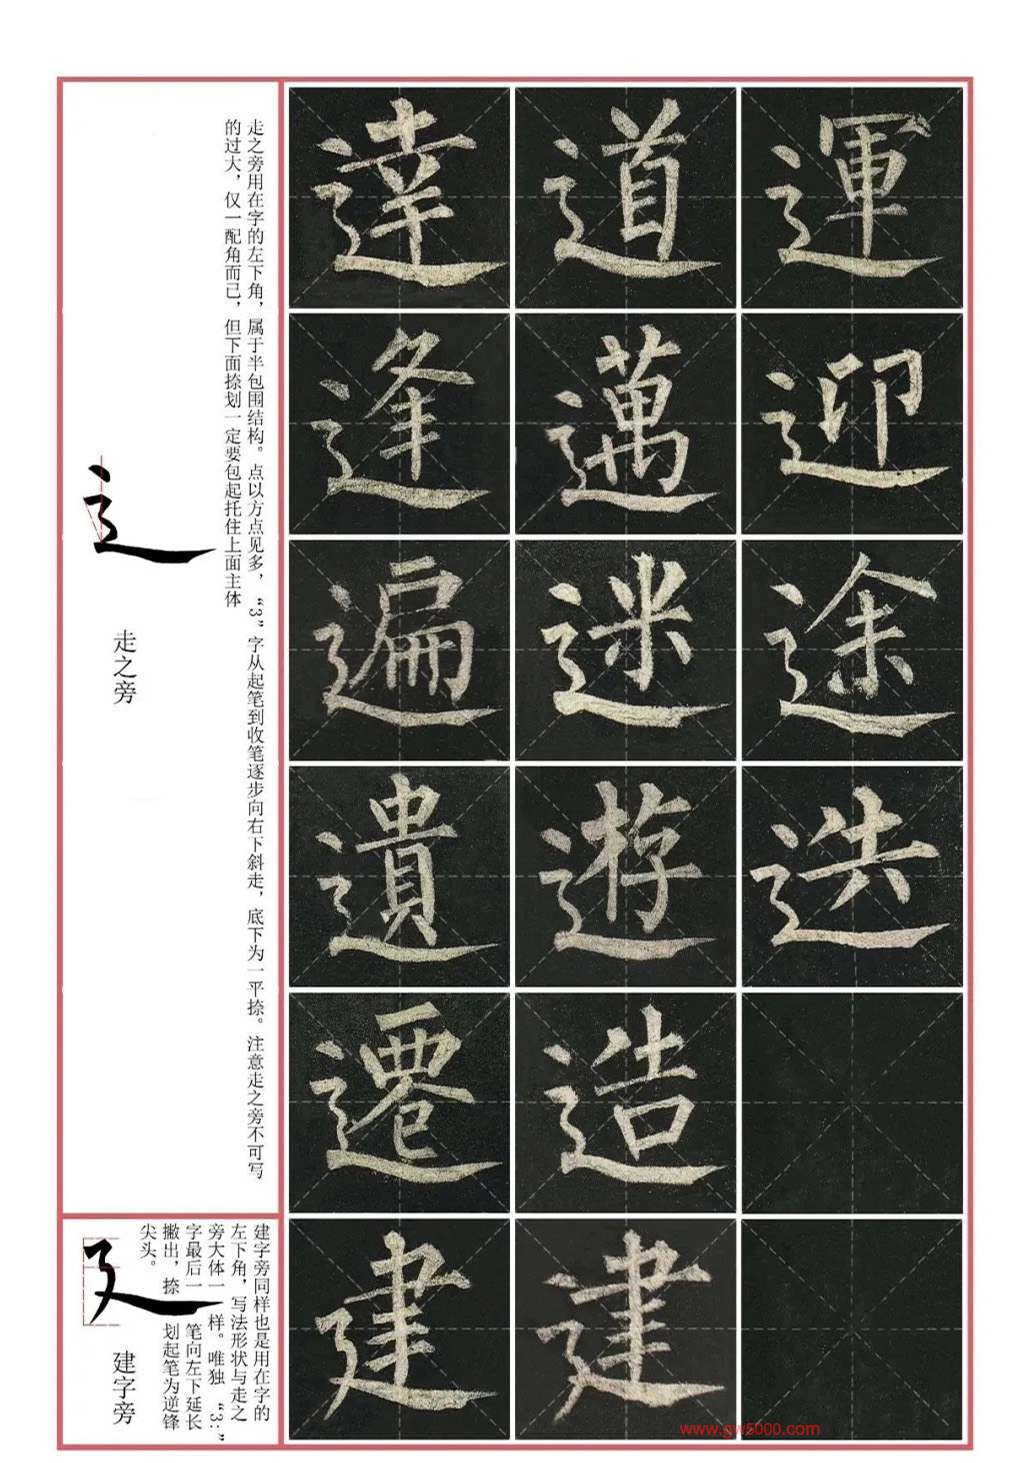 運
迎
途
迭
道
邁
迷
遊
造
建
達
逢
遍
遺
遷
建
走之旁用在字的左下角，属于半包围结构。点以方点见多，“3”字从起笔到收笔逐步向右下斜走，底下为一平捺。注意走之旁不可写
的过大，仅一配角而已，但下面捺划一定要包起托住上面主体
走之旁
辶
建字旁同样也是用在字的
左下角，写法形状与走之
旁大体一样。唯独“3:”
字最后一笔向左下延长
撇出，捺划起笔为逆锋
尖头。
建字旁
廴
www.gw5000.com